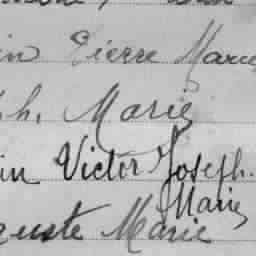 in Pierre Marie
ph, Marie
in Victor Joseph.
Marie
guste Marie